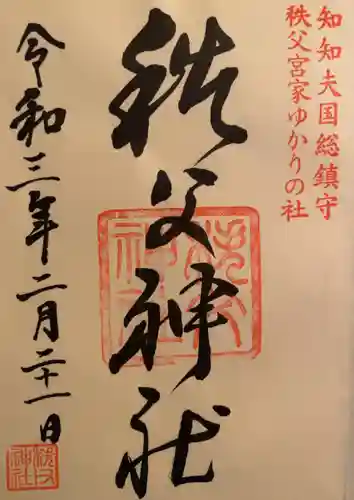 知知夫国総鎮守
秩父宮家ゆかりの社
秩父神社
令和三年二月二十一日
秩父神社
秩父神社